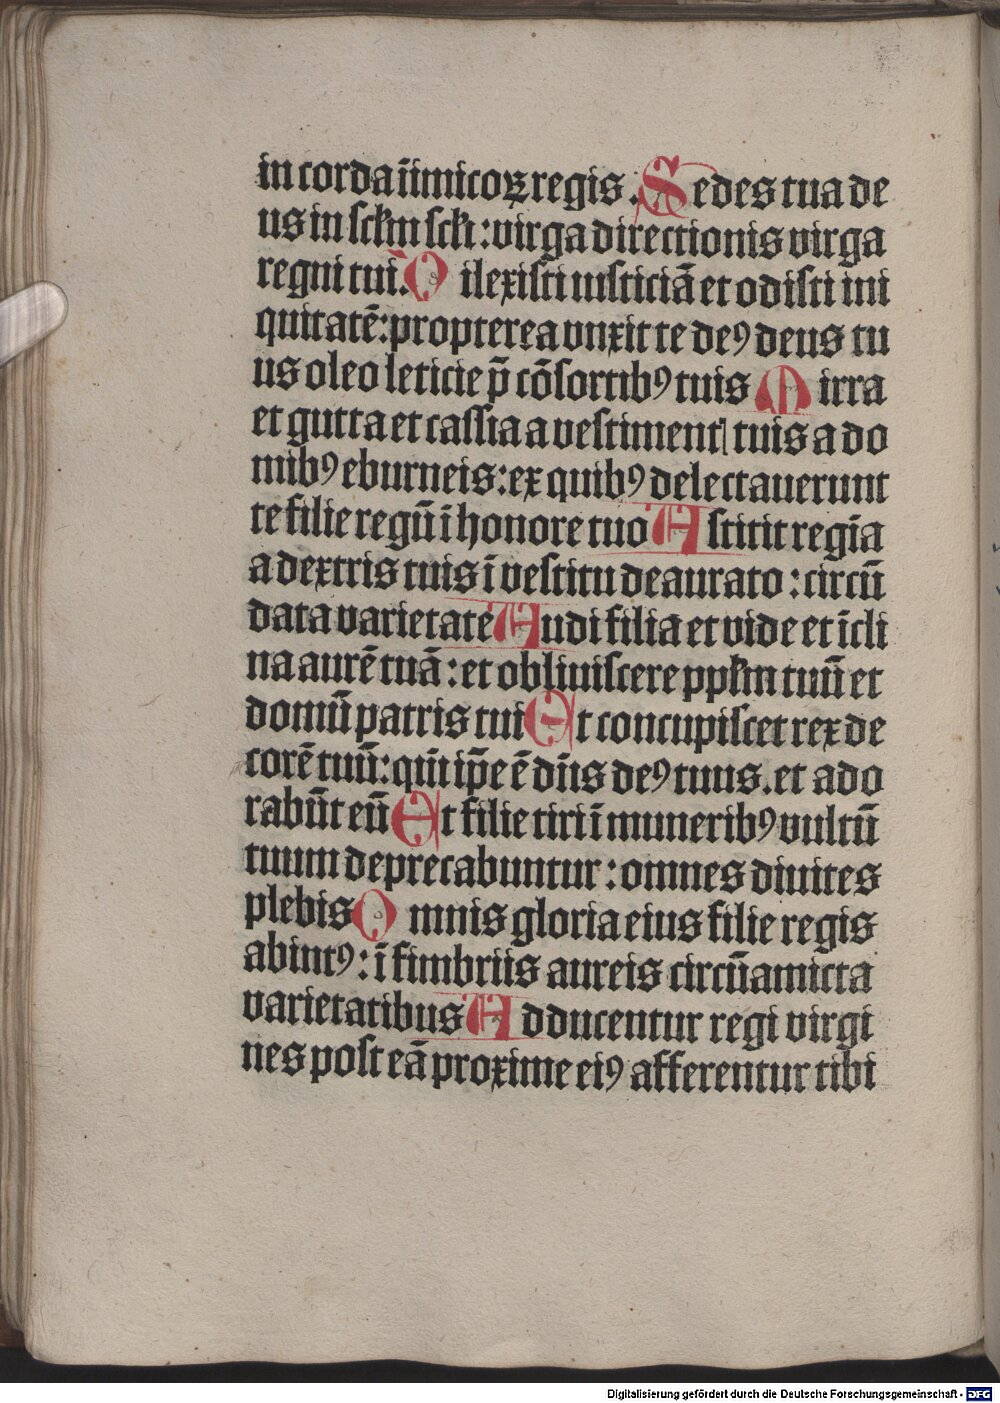 in corda iĩmicoꝝ regis . Sedes tua de
us in sclm̄ scli : virga directionis virga
regni tui . Dilexisti iusticiā et odisti ini
quitatē : propterea vnxit te deꝰ deus tu
us oleo leticie p̄ cōsortibꝰ tuis Mirra
et gutta et cassia a vestimentꝭ tuis a do
mibꝰ eburneis : ex quibꝰ delectauerunt
te filie regū ī honore tuo Astitit regīa
a dextris tuis ī vestitu deaurato : circū
data varietate Audi filia et vide et īcli
na aurē tuā : et obliuiscere pplm̄ tuū et
domū patris tui Et concupiscet rex de
corē tuū : qm̄ ip̄e ē dn̄s deꝰ tuus . et ado
rabūt eū Et filie tiri ī muneribꝰ vultū
tuum deprecabuntur : omnes diuites
plebis Omnis gloria eius filie regis
abintꝰ : ī fimbriis aureis circūamicta
varietatibus Adducentur regi virgi
nes post eā proxime eiꝰ afferentur tibi
Digitalisierung gefördert durch die Deutsche Forschungsgemeinschaft - DFG